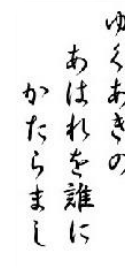 ゆくあきの
あはれを誰に
かたらまし